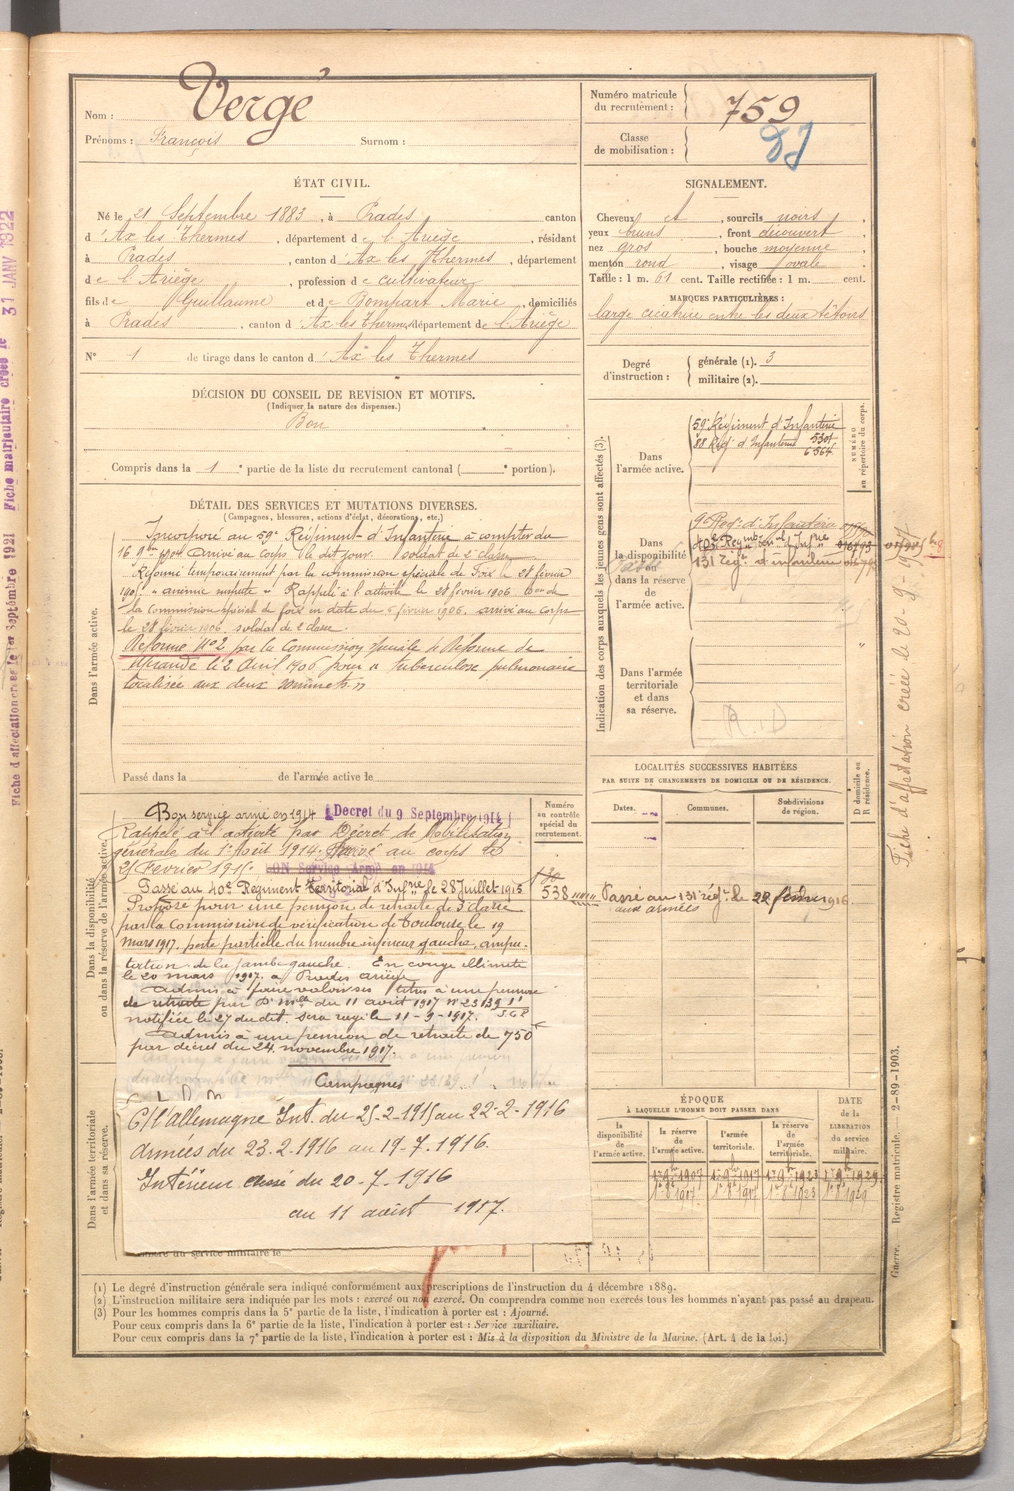 Nom : Vergé
Prénoms : François Surnom :
Numéro matricule du recrutement : 759
Classe de mobilisation :
ÉTAT CIVIL.
Né le 21 Septembre 1883, à Prades canton
d'Ax les Thermes, département de l'Ariège, résidant
à Prades, canton d'Ax les Thermes, département
de l'Ariège, profession de cultivateur
fils de Guillaume et de Bompart Marie, domiciliés
à Prades, canton d'Ax les Thermes, département de l'Ariège
N° 1 de tirage dans le canton d'Ax les Thermes
SIGNALEMENT.
Cheveux et, sourcils noirs,
yeux bruns, front découvert,
nez gros, bouche moyenne,
menton rond, visage ovale.
Taille : 1 m. 61 cent. Taille rectifiée : 1 m. cent.
MARQUES PARTICULIÈRES :
large cicatrice entre les deux tétons
Degré d'instruction : générale (1). 3
militaire (2).
DÉCISION DU CONSEIL DE REVISION ET MOTIFS.
(Indiquer la nature des dispenses.)
Bon
Compris dans la 1e partie de la liste du recrutement cantonal ( e portion).
DÉTAIL DES SERVICES ET MUTATIONS DIVERSES.
(Campagnes, blessures, actions d'éclat, décorations, etc.)
Dans l'armée active.
Incorporé au 59e Régiment d'Infanterie à compter du
16 9bre 1904 Arrivé au Corps le dit jour. Soldat de 2e classe
Réformé temporairement par la commission spéciale de Foix le 28 février
Rappelé à l'activité le 28 février 1906
la Commission spéciale de foix en date du 5 février 1906. arrivé au corps
le 28 février 1906, soldat de 2 classe.
Réformé N° 2 par la Commission spéciale de Réforme de
Mirande le 2 Avril 1906 pour " tuberculose pulmonaire
localisée aux deux sommets "
Passé dans la de l'armée active le
Indication des corps auxquels les jeunes gens sont affectés (3).
NUMÉRO au répertoire du corps.
Dans l'armée active.
59e Régiment d'Infanterie
88 Régt d'Infanterie 5301
6564
Dans la disponibilité ou dans la réserve de l'armée active.
9e Régt d'Infanterie
131 régt d'infanterie
Dans l'armée territoriale et dans sa réserve.
R.D
LOCALITÉS SUCCESSIVES HABITÉES
PAR SUITE DE CHANGEMENTS DE DOMICILE OU DE RÉSIDENCE.
Dates. Communes. Subdivisions de région. D domicile ou R résidence.
Dans la disponibilité ou dans la réserve de l'armée active.
Numéro au contrôle spécial du recrutement.
Bon service armé en 1914 Décret du 9 Septembre 1914
Rappelé à l'activité par Décret de Mobilisation
générale du 1er Août 1914. Arrivé au corps le
25 Février 1915. BON Service Armé en 1914
Passé au 40e Régiment Territorial d'Infrie le 28 Juillet 1915
538 Passé au 131 régt le 22 février 1916
aux armées
Proposé pour une pension de retraite de 3e classe
par la Commission de vérification de Toulouse le 19
mars 1917. perte partielle du membre inférieur gauche, ampu-
tation de la jambe gauche. En congé illimité
le 20 mars 1917. à Prades ariège
Admis à faire valoir ses titres à une pension
de retraite par Don mlle du 11 août 1917 N° 23139 1/
notifiée le 27 du dit. sera rayé le 11-9-1917. 5 G P
Admis à une pension de retraite de 750 f
par décret du 24 novembre 1917.
Campagnes
C/ l'allemagne Int. du 25-2-1915 au 22-2-1916
Armées du 23-2-1916 au 19-7-1916.
Intérieur du 20-7-1916
au 11 août 1917.
Dans l'armée territoriale et dans sa réserve.
du service militaire le
ÉPOQUE
À LAQUELLE L'HOMME DOIT PASSER DANS
la disponibilité de l'armée active. la réserve de l'armée active. l'armée territoriale. la réserve de l'armée territoriale. DATE de la LIBÉRATION du service militaire.
(1) Le degré d'instruction générale sera indiqué conformément aux prescriptions de l'instruction du 4 décembre 1889.
(2) L'instruction militaire sera indiquée par les mots : exercé ou non exercé. On comprendra comme non exercés tous les hommes n'ayant pas passé au drapeau.
(3) Pour les hommes compris dans la 5e partie de la liste, l'indication à porter est : Ajourné.
Pour ceux compris dans la 6e partie de la liste, l'indication à porter est : Service auxiliaire.
Pour ceux compris dans la 7e partie de la liste, l'indication à porter est : Mis à la disposition du Ministre de la Marine. (Art. 4 de la loi.)
Fiche d'affectation créée le 20-9-19
Guerre. Registre matricule. — 2-89-1903.
Fiche d'affectation créée le 1er Septembre 1921 Fiche matriculaire créée le 31 JANV 1922